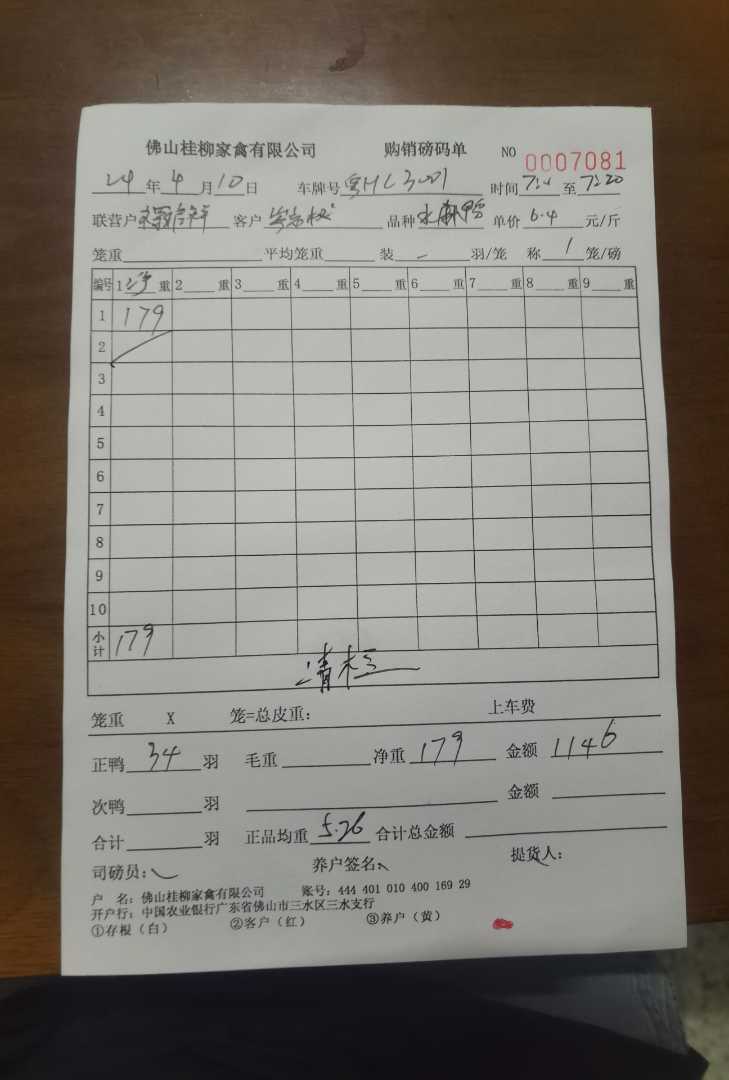 佛山桂柳家禽有限公司 购销磅码单 NO 0007081
24年4月10日 车牌号 粤HL3001 时间 至7:20
联营户 客户 品种 水 单价6.4元/斤
笼重 平均笼重 装 - 羽/笼 称 1 笼/磅
编号 1 净 重 2 重 3 重 4 重 5 重 6 重 7 重 8 重 9 重
1 179
2
3
4
5
6
7
8
9
10
小计 179
清栏
笼重 X 笼=总皮重: 上车费
正鸭 34 羽 毛重 净重 179 金额 1146
次鸭 羽 金额
合计 羽 正品均重 5.26 合计总金额
司磅员: 养户签名: 提货人:
户 名: 佛山桂柳家禽有限公司 账号: 444 401 010 400 169 29
开户行: 中国农业银行广东省佛山市三水区三水支行
①存根(白) ②客户(红) ③养户(黄)